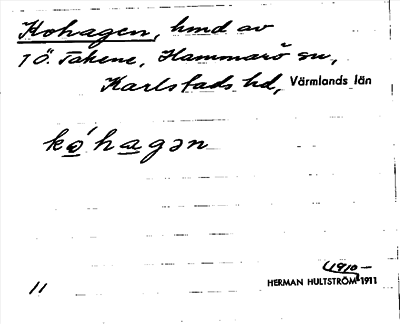 Kohagen, hmd av
1 Ö. Takene, Hammarö sn,
Karlstads hd, Värmlands län
kǫ́hagən
1910-
HERMAN HULTSTRÖM 1911
11